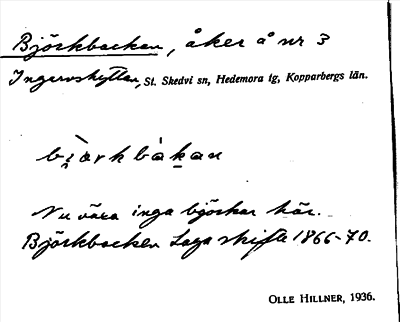 Björkbackan, åker å nr 3
Ingervshyttan, St. Skedvi sn, Hedemora tg, Kopparbergs län.
bjàrkbàkan
Nu växa inga björkar här.
Björkbacken Laga skifte 1866-70.
OLLE HILLNER, 1936.